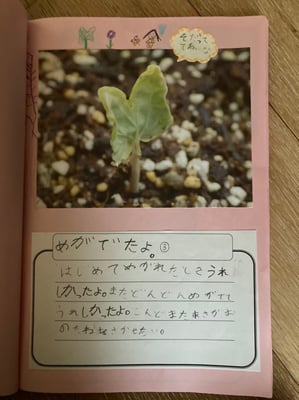 そだって
てね
めがでたよ。③
はじめてめがれたときうれ
しかったよ。まだどんどんめがでて
うれしかったよ。こんどまたあさがお
のたねをさかせたい。